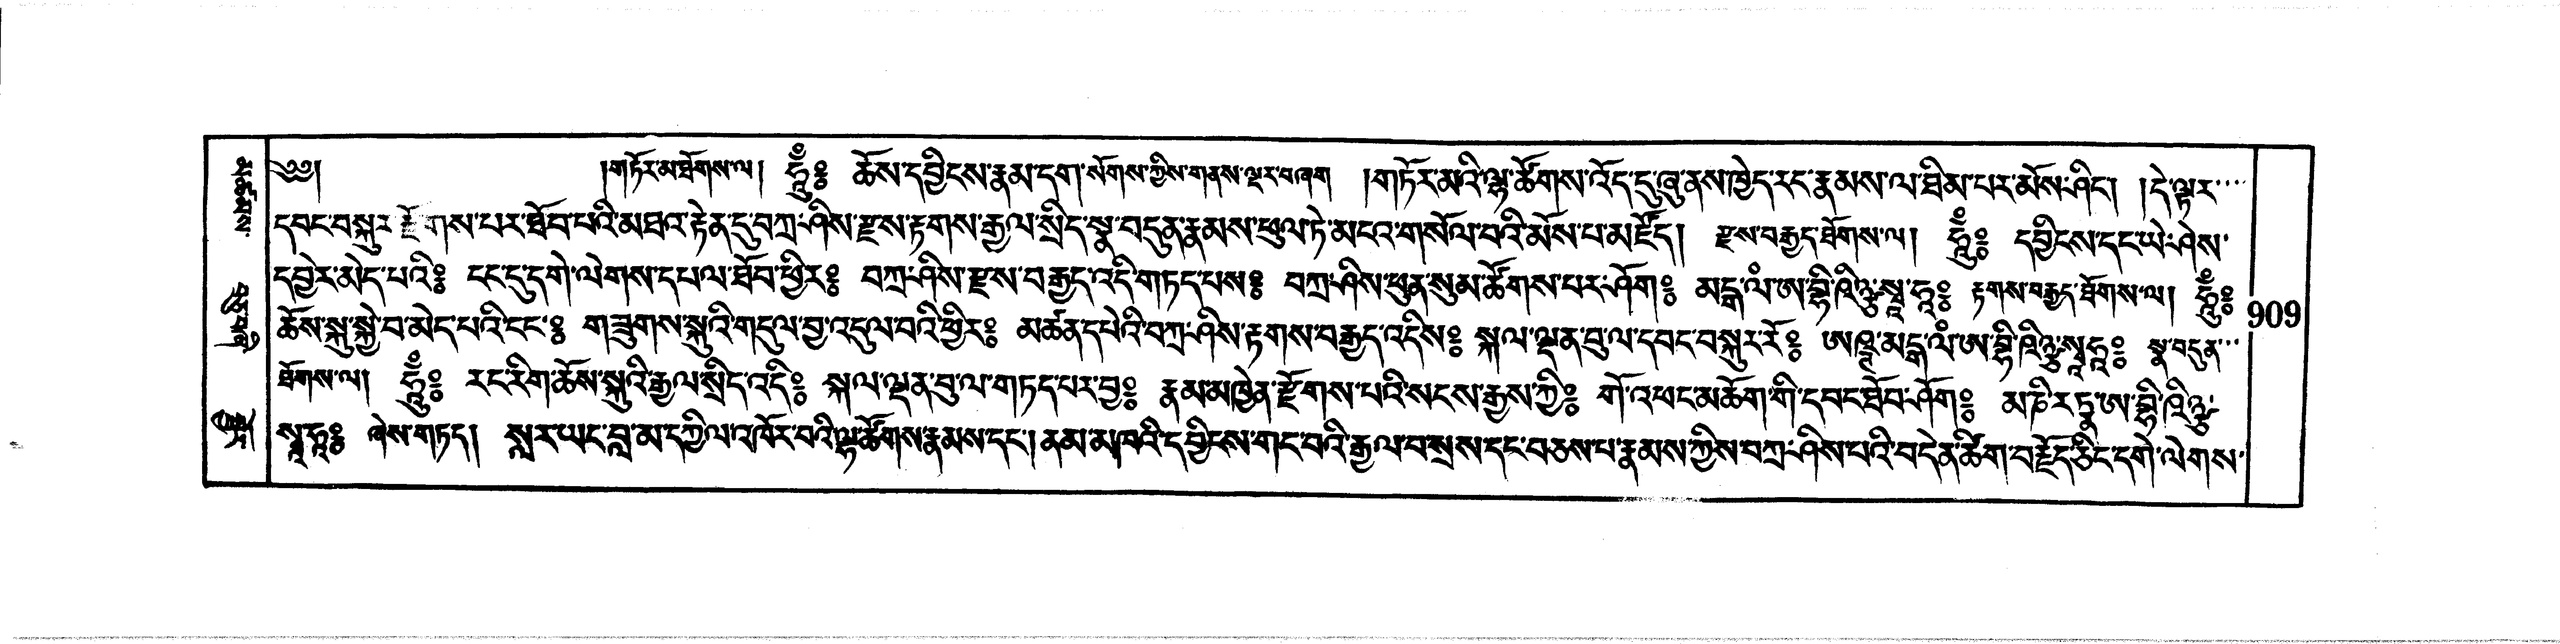 ༄༅། །གཏོར་མ་ཐོགས་ལ། ཧཱུྃ༔ ཆོས་དབྱིངས་རྣམ་དག་སོགས་ཀྱིས་གནས་ལྔར་བཞག །གཏོར་མའི་ལྷ་ཚོགས་འོད་དུ་ཞུ་ནས་ཁྱེད་རང་རྣམས་ལ་ཐིམ་པར་མོས་ཤིང༌། །དེ་ལྟར་
དབང་བསྐུར་རྫོགས་པར་ཐོབ་པའི་མཐའ་རྟེན་དུ་བཀྲ་ཤིས་རྫས་རྟགས་རྒྱལ་སྲིད་སྣ་བདུན་རྣམས་ཕུལ་ཏེ་མངའ་གསོལ་བའི་མོས་པ་མཛོད། རྫས་བརྒྱད་ཐོགས་ལ། ཧཱུྃ༔ དབྱིངས་དང་ཡེ་ཤེས་
དབྱེར་མེད་པའི༔ ངང་དུ་དགེ་ལེགས་དཔལ་ཐོབ་ཕྱིར༔ བཀྲ་ཤིས་རྫས་བརྒྱད་འདི་གཏད་པས༔ བཀྲ་ཤིས་ཕུན་སུམ་ཚོགས་པར་ཤོག༔ མངྒ་ལཾ་ཨ་བྷི་ཥིཉྩ་སྭཱ་ཧཱ༔ རྟགས་བརྒྱད་ཐོགས་ལ། ཧཱུྃ༔
ཆོས་སྐུ་སྐྱེ་བ་མེད་པའི་ངང་༔ གཟུགས་སྐུའི་གདུལ་བྱ་འདུལ་བའི་ཕྱིར༔ མཚན་དཔེའི་བཀྲ་ཤིས་རྟགས་བརྒྱད་འདིས༔ སྐལ་ལྡན་བུ་ལ་དབང་བསྐུར་རོ༔ ཨཥྚ་མངྒ་ལཾ་ཨ་བྷི་ཥིཉྩ་སྭཱ་ཧཱ༔ སྣ་བདུན་
ཐོགས་ལ། ཧཱུྃ༔ རང་རིག་ཆོས་སྐུའི་རྒྱལ་སྲིད་འདི༔ སྐལ་ལྡན་བུ་ལ་གཏད་པར་བྱ༔ རྣམ་མཁྱེན་རྫོགས་པའི་སངས་རྒྱས་ཀྱི༔ གོ་འཕང་མཆོག་གི་དབང་ཐོབ་ཤོག༔ མ་ཎི་རཏྣ་ཨ་བྷི་ཥིཉྩ་
སྭཱ་ཧཱ༔ ཞེས་གཏད། སླར་ཡང་བླ་མ་དཀྱིལ་འཁོར་བའི་ལྷ་ཚོགས་རྣམས་དང་། ནམ་མཁའི་དབྱིངས་གང་བའི་རྒྱལ་བ་སྲས་དང་བཅས་པ་རྣམས་ཀྱིས་བཀྲ་ཤིས་པའི་བདེན་ཚིག་བརྗོད་ཅིང་དགེ་ལེགས་
909